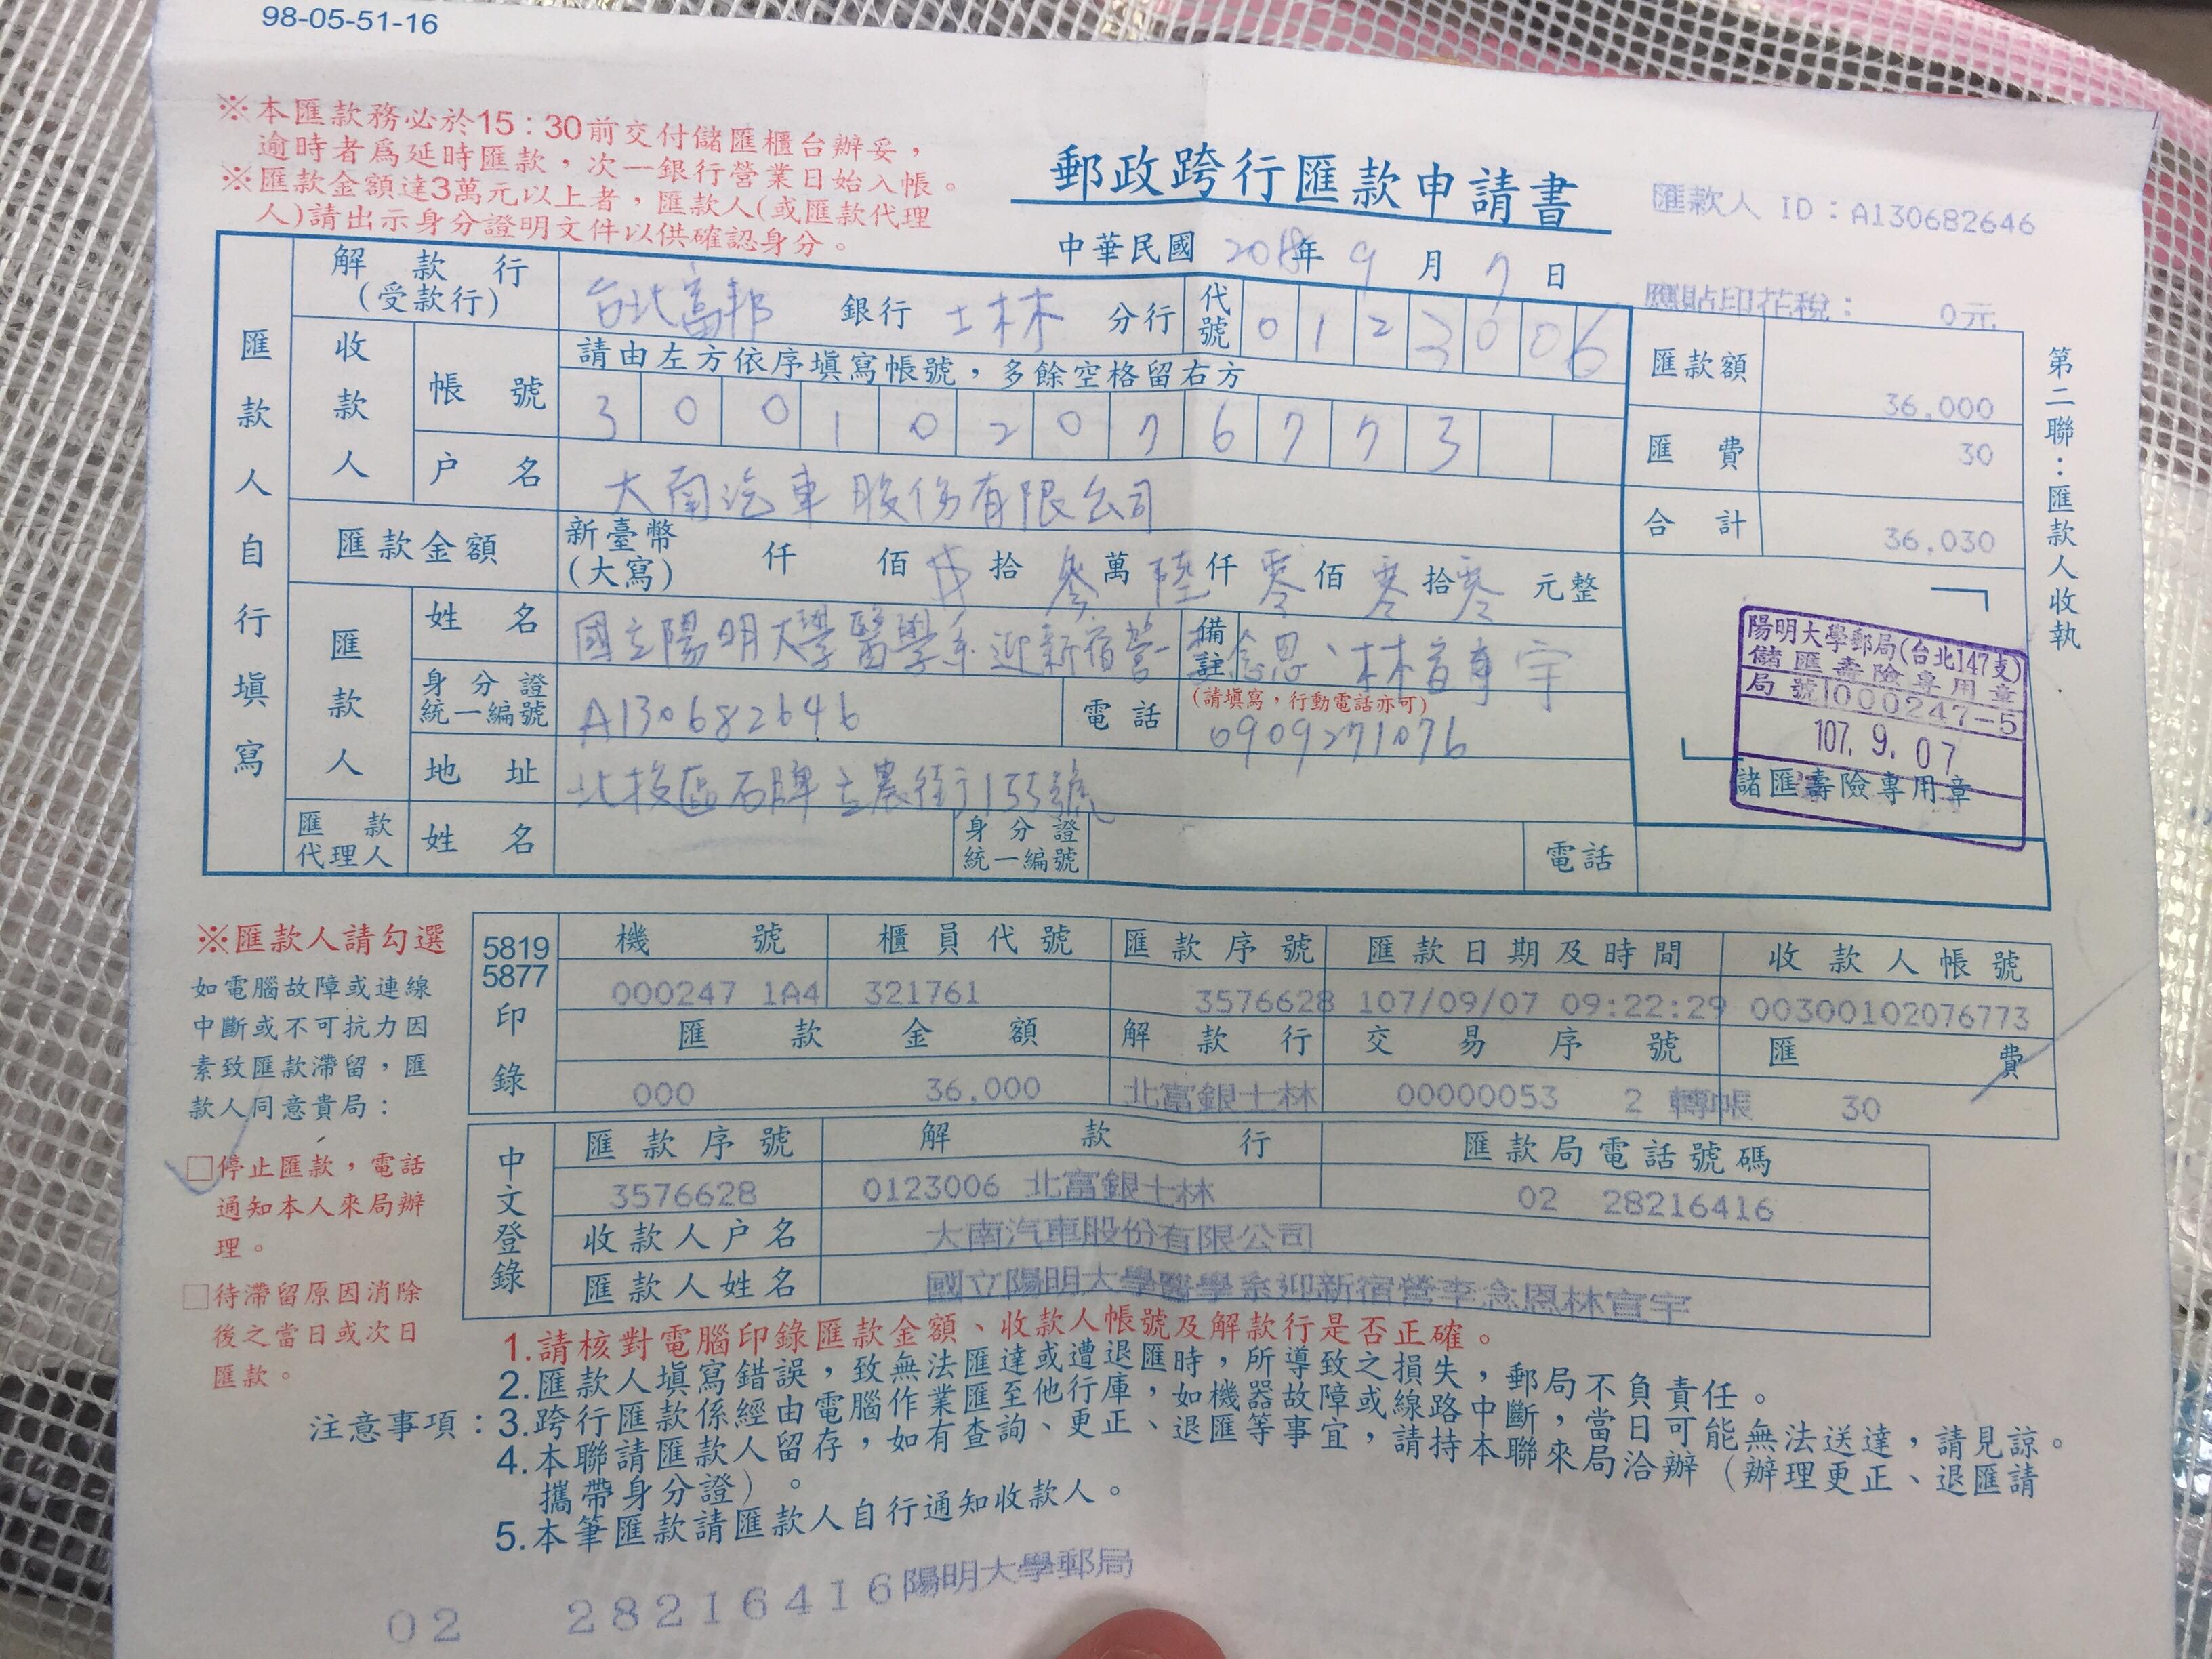 98-05-51-16
※本匯款務必於15:30前交付儲匯櫃台辦妥，
逾時者為延時匯款，次一銀行營業日始入帳。
※匯款金額達3萬元以上者，匯款人(或匯款代理
人)請出示身分證明文件以供確認身分。
郵政跨行匯款申請書
匯款人 ID：A130682646
中華民國 2018年 9 月 7 日
應貼印花稅： 0元
匯款人自行填寫
解款行 (受款行) 台北富邦 銀行 士林 分行 代號 0123006
收款人
請由左方依序填寫帳號，多餘空格留右方
帳號 300102076773
戶名 大南汽車股份有限公司
匯款額 36,000
匯費 30
合計 36,030
第二聯：匯款人收執
匯款金額 新臺幣(大寫) 仟 佰 拾 參萬 陸仟 零佰 零拾 零 元整
匯款人
姓名 國立陽明大學醫學系迎新宿營 備註 念恩、林 宇
身分證統一編號 A130682646 電話 (請填寫，行動電話亦可) 0909271076
地址 北投區石牌立農街155號
匯款代理人 姓名 身分證統一編號 電話
陽明大學郵局(台北147支)
儲匯壽險專用章
局號1000247-5
107. 9. 07
儲匯壽險專用章
※匯款人請勾選
如電腦故障或連線
中斷或不可抗力因
素致匯款滯留，匯
款人同意貴局：
□停止匯款，電話
通知本人來局辦
理。
□待滯留原因消除
後之當日或次日
匯款。
5819
5877
印錄
機號 櫃員代號 匯款序號 匯款日期及時間 收款人帳號
000247 1A4 321761 3576628 107/09/07 09:22:29 00300102076773
匯款金額 解款行 交易序號 匯費
000 36,000 北富銀士林 00000053 2 轉帳 30
中文登錄
匯款序號 解款行 匯款局電話號碼
3576628 0123006 北富銀士林 02 28216416
收款人戶名 大南汽車股份有限公司
匯款人姓名 國立陽明大學醫學系迎新宿營李念恩林宣宇
注意事項：
1.請核對電腦印錄匯款金額、收款人帳號及解款行是否正確。
2.匯款人填寫錯誤，致無法匯達或遭退匯時，所導致之損失，郵局不負責任。
3.跨行匯款係經由電腦作業匯至他行庫，如機器故障或線路中斷，當日可能無法送達，請見諒。
4.本聯請匯款人留存，如有查詢、更正、退匯等事宜，請持本聯來局洽辦（辦理更正、退匯請
攜帶身分證）。
5.本筆匯款請匯款人自行通知收款人。
02 28216416陽明大學郵局